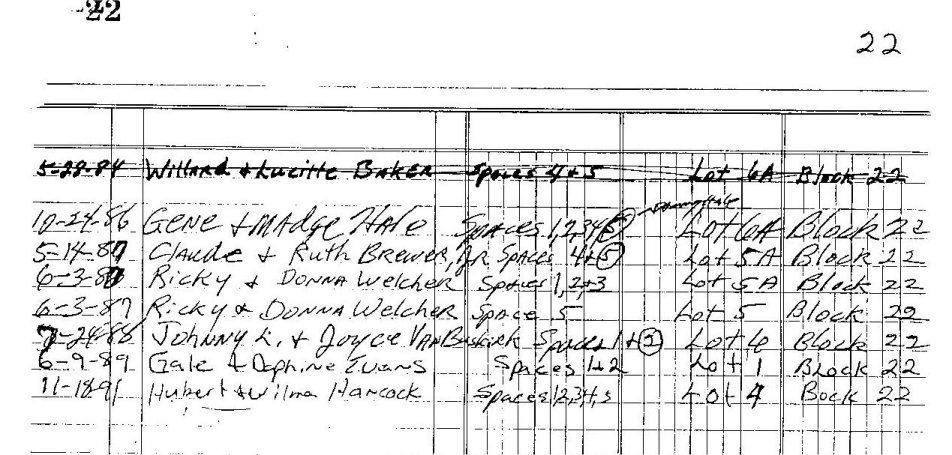 22
22
5-28-84 Willard + Lucille Baker Spaces 4+5 Lot 6A Block 22
10-24-86 Gene + Madge Hale Spaces 1,2,3,4,5 Lot 6A Block 22
5-14-87 Claude + Ruth Brewer, JR Spaces 4+5 Lot 5A Block 22
6-3-87 Ricky + Donna Welcher Spaces 1,2,+3 Lot 5A Block 22
6-3-87 Ricky + Donna Welcher Space 5 Lot 5 Block 22
7-24-88 Johnny L. + Joyce VanBuskirk Spaces 1+2 Lot 6 Block 22
6-9-89 Gale + Daphine Evans Spaces 1+2 Lot 1 Block 22
11-18-91 Hubert + Wilma Hancock Spaces 1,2,3,4,5 Lot 4 Bock 22